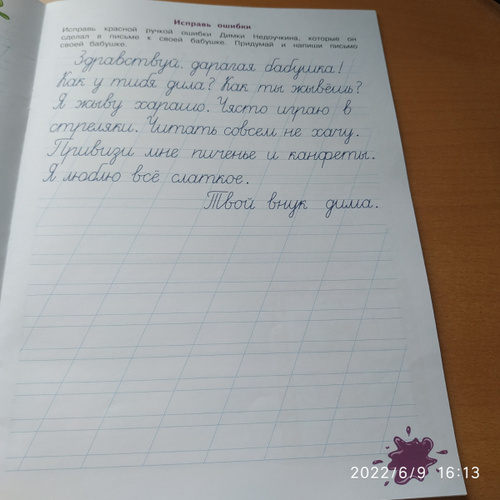 Исправь ошибки
Исправь красной ручкой ошибки Димки Недоучкина, которые он
сделал в письме к своей бабушке. Придумай и напиши письмо
своей бабушке.
Здравствуй, дарагая бабушка!
Как у тибя дила? Как ты жывёшь?
Я жыву харашо. Чясто играю в
стрелялки. Читать совсем не хачу.
Привизи мне пиченье и канфеты.
Я люблю всё слаткое.
Твой внук дима.
2022/6/9 16:13